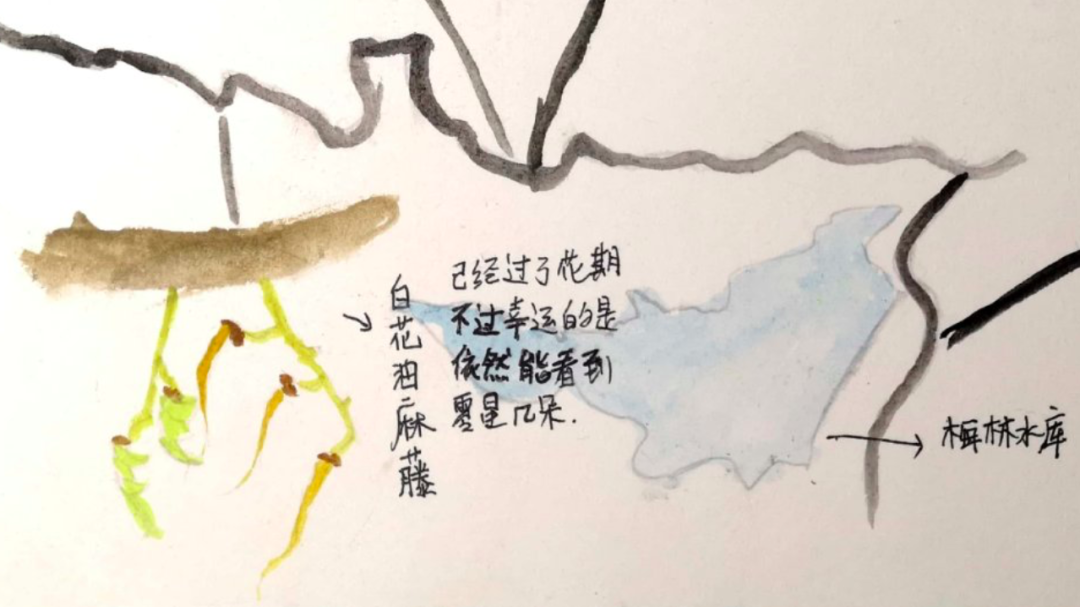 白花油麻藤
已经过了花期
不过幸运的是
依然能看到
零星几朵.
梅林水库